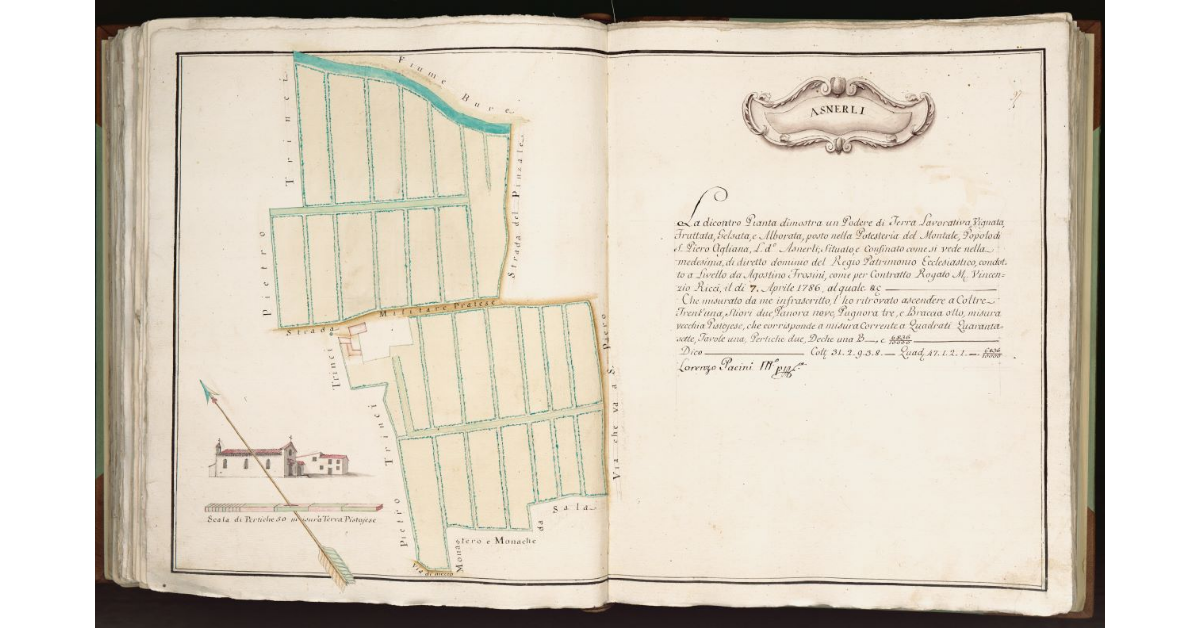 Fiume Bure
Pietro Trinci
Strada del Pinzale
Strada Militare Pratese
Trinci
Pietro Trinci
Via che va a S. Paero
Scala di Pertiche 30 misura Terra Pistojese
Monastero e Monache da Sala
Via di mezzo
ASNERLI
La dicontro Pianta dimostra un Podere di Terra Lavorativa, Vignata,
Fruttata, Gelsata, e Alborata, posto nella Potesteria del Montale, Popolo di
S. Piero Agliana, L.d° Asnerli, Situato, e Confinato come si vede nella
medesima, di diretto dominio del Regio Patrimonio Ecclesiastico, condot-
to a Livello da Agostino Frosini, come per Contratto Rogato M. Vincen-
zio Ricci, il di 7. Aprile 1786, al quale &c
Che misurato da me infrascritto, l'ho ritrovato ascendere a Coltre
Trent'una, Stiori due, Panora nove, Pugnora tre, e Braccia otto, misura
vecchia Pistojese, che corrisponde a misura Corrente a Quadrati Quaranta-
sette, Tavole una, Pertiche due, Deche una B—, e
Dico Colt. 31. 2. 9. 3. 8. — Quad. 47. 1. 2. 1. —
Lorenzo Pacini